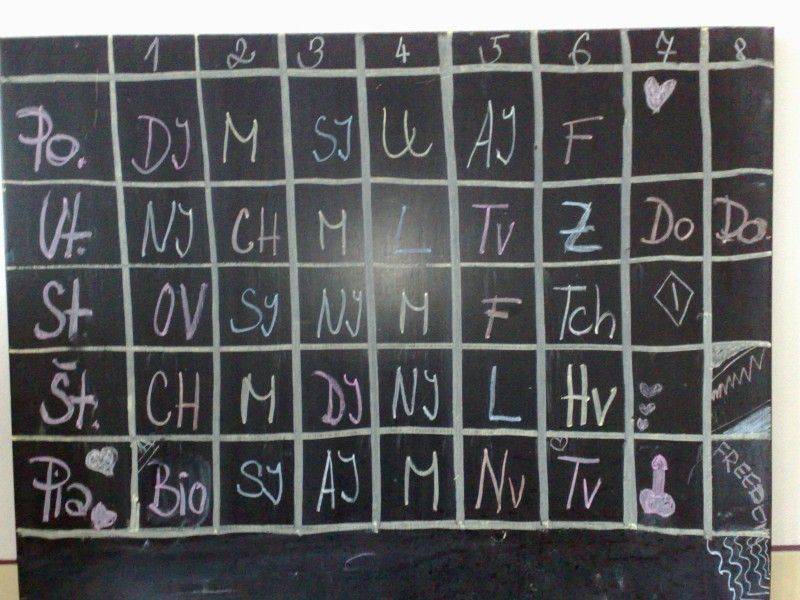 1 2 3 4 5 6 7 8
Po. DJ M SJ U AJ F
Ut. NJ CH M L Tv Z Do Do.
St OV SJ NJ M F Tch
Št. CH M DJ NJ L Hv
Pia. Bio SJ AJ M Nv Tv